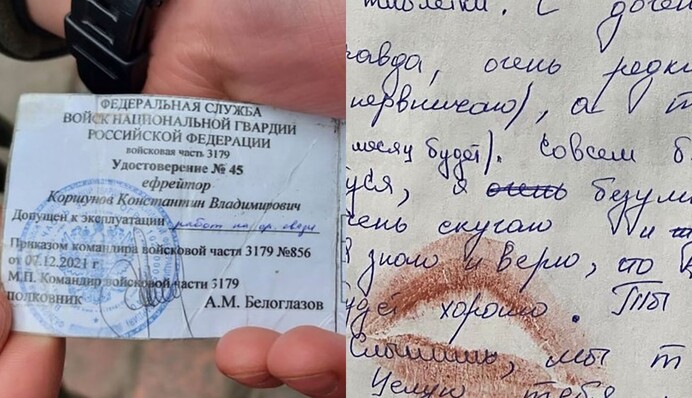 ФЕДЕРАЛЬНАЯ СЛУЖБА
ВОЙСК НАЦИОНАЛЬНОЙ ГВАРДИИ
РОССИЙСКОЙ ФЕДЕРАЦИИ
войсковая часть 3179
Удостоверение № 45
ефрейтор
Коршунов Константин Владимирович
Допущен к эксплуатации работ на ср. связи
Приказом командира войсковой части 3179 №856
от 07.12.2021 г.
М.П. Командир войсковой части 3179
полковник А.М. Белоглазов
таблетки. С дочен
равда, очень редк
нервничаю), а т
месяц будет). Совсем б
уся, я очень безум
чень скучаю и
Я знаю и верю, что
удет хорошо. Ты
Слышишь, мы т
Целую тебя